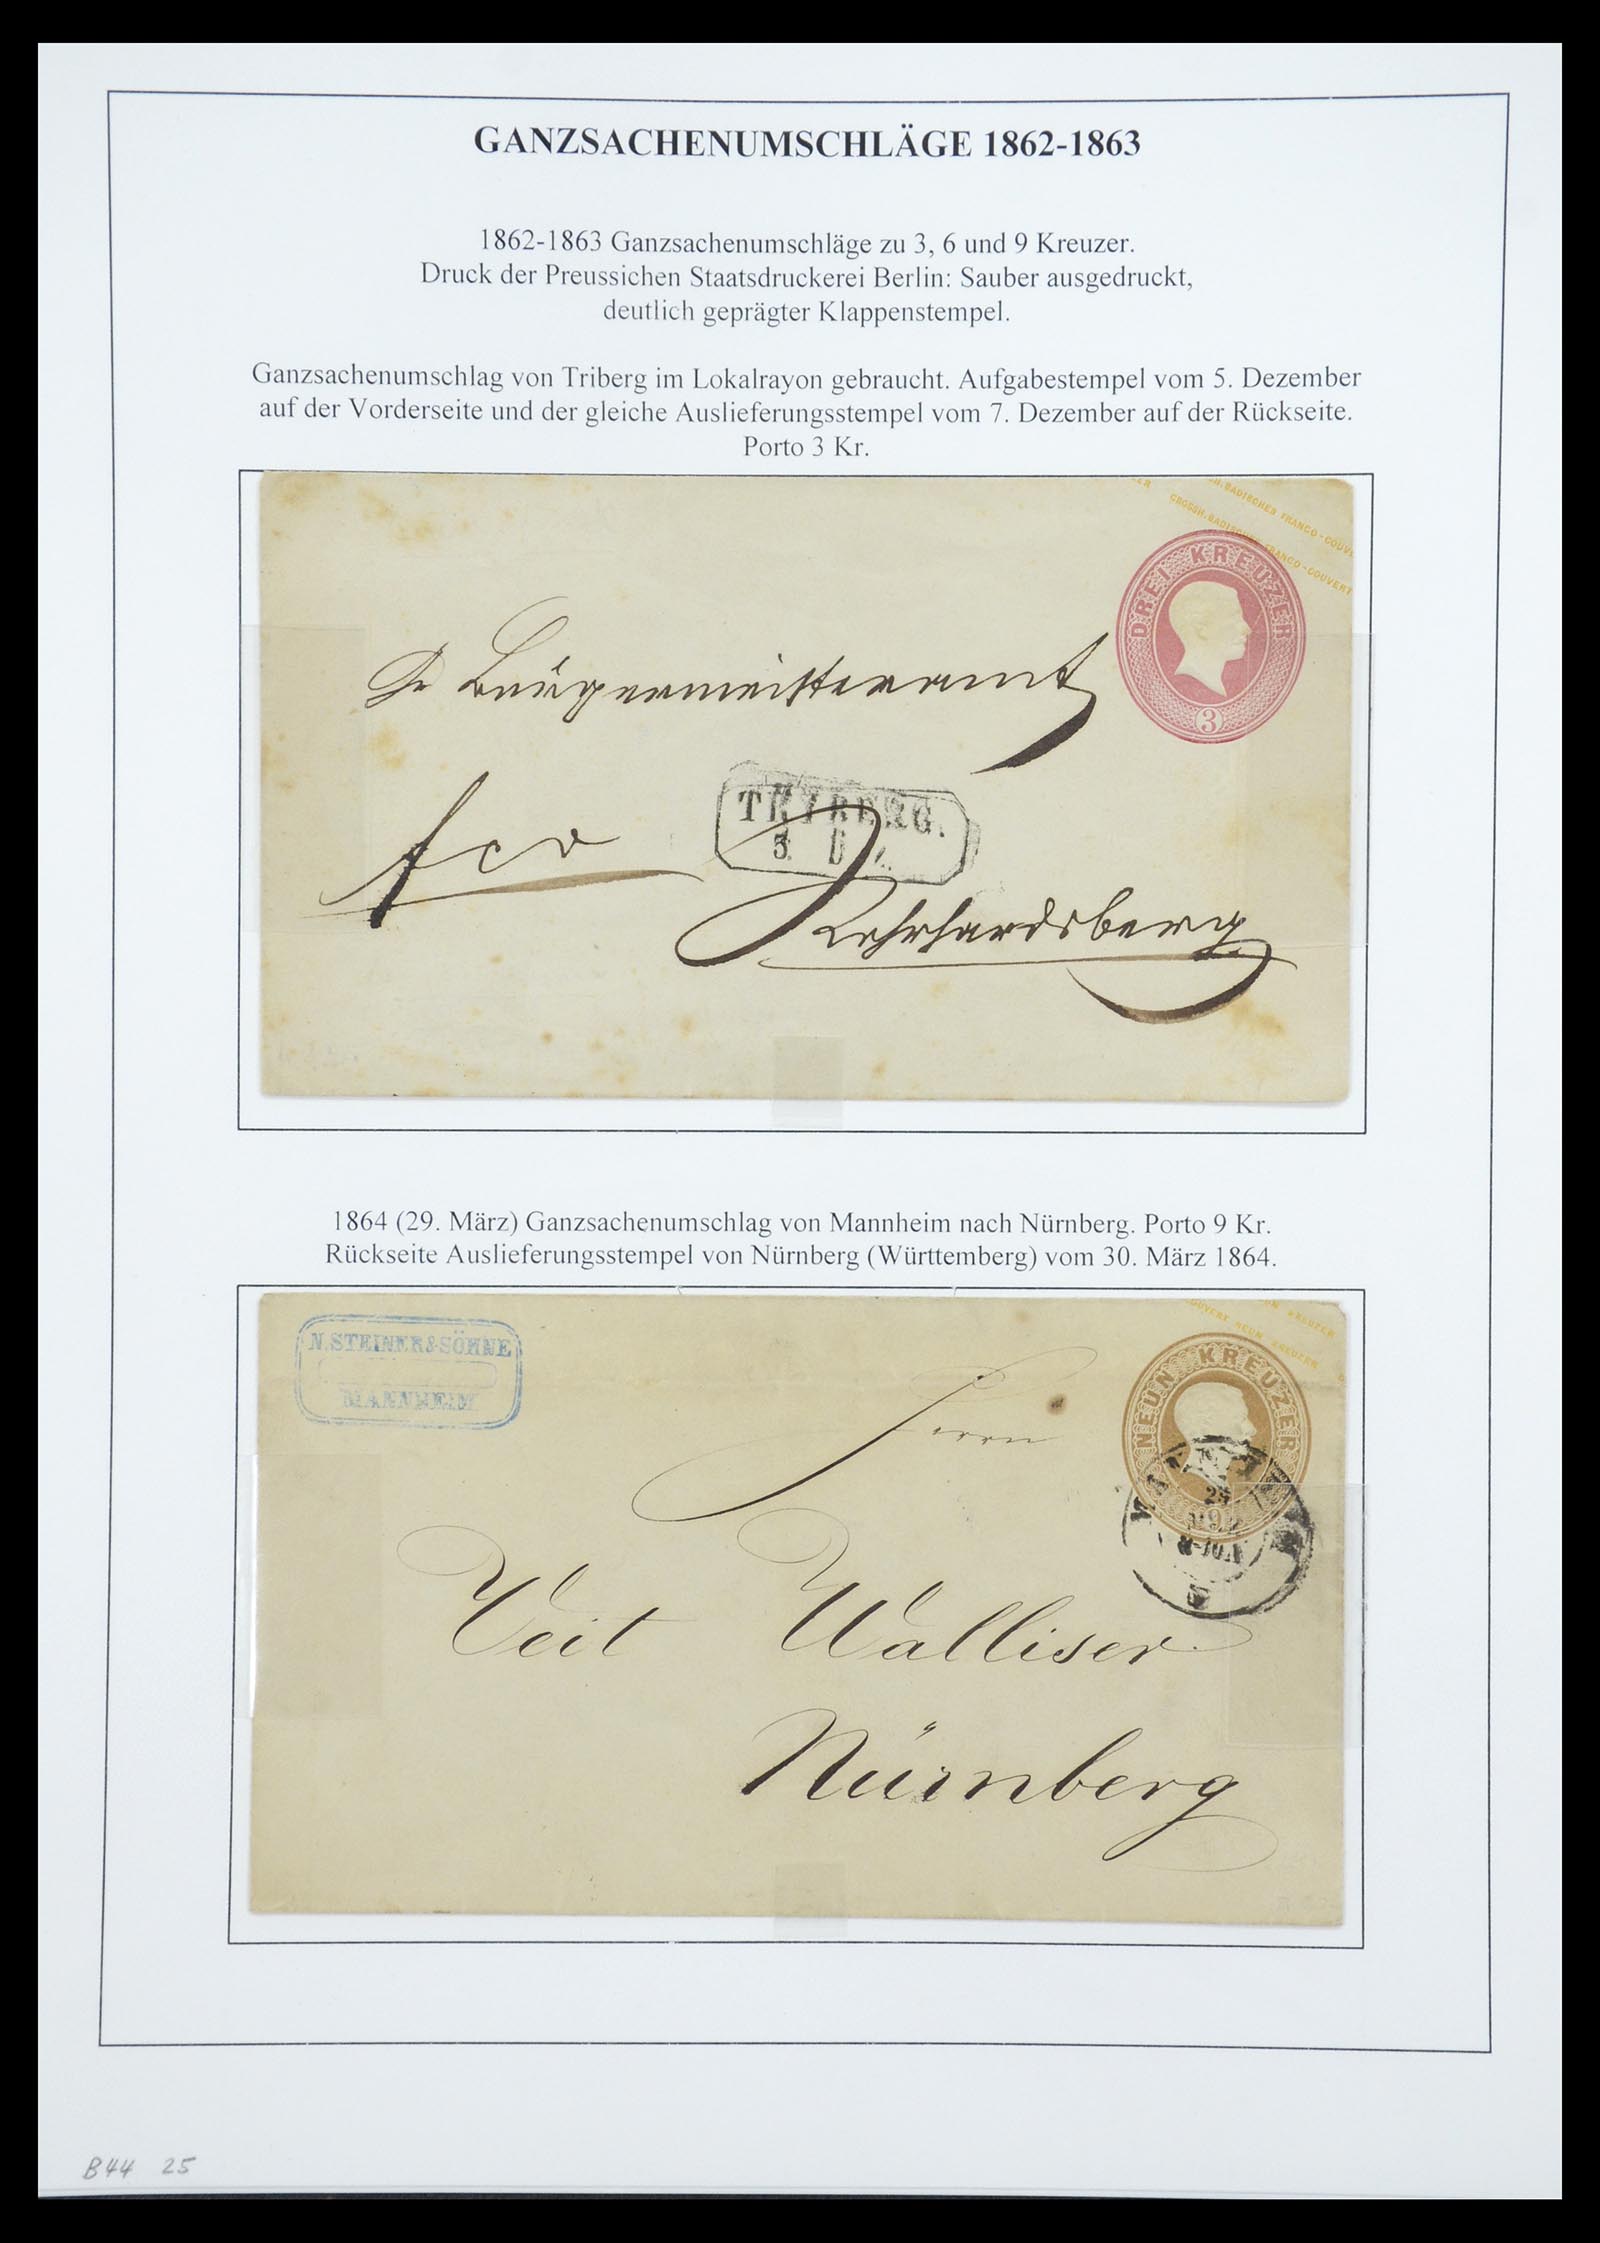 GANZSACHENUMSCHLÄGE 1862-1863
1862-1863 Ganzsachenumschläge zu 3, 6 und 9 Kreuzer.
Druck der Preussichen Staatsdruckerei Berlin: Sauber ausgedruckt,
deutlich geprägter Klappenstempel.
Ganzsachenumschlag von Triberg im Lokalrayon gebraucht. Aufgabestempel vom 5. Dezember
auf der Vorderseite und der gleiche Auslieferungsstempel vom 7. Dezember auf der Rückseite.
Porto 3 Kr.
GROSSH. BADISCHES FRANCO-COUVERT
DREI KREUZER
3
Bürgermeisteramt
TRIBERG.
5
fco
1864 (29. März) Ganzsachenumschlag von Mannheim nach Nürnberg. Porto 9 Kr.
Rückseite Auslieferungsstempel von Nürnberg (Württemberg) vom 30. März 1864.
N. STEINER & SÖHNE
MANNHEIM
COUVERT NEUN KREUZER
NEUN KREUZER
9
Herrn
Veit Walliser
Nürnberg
B44 25